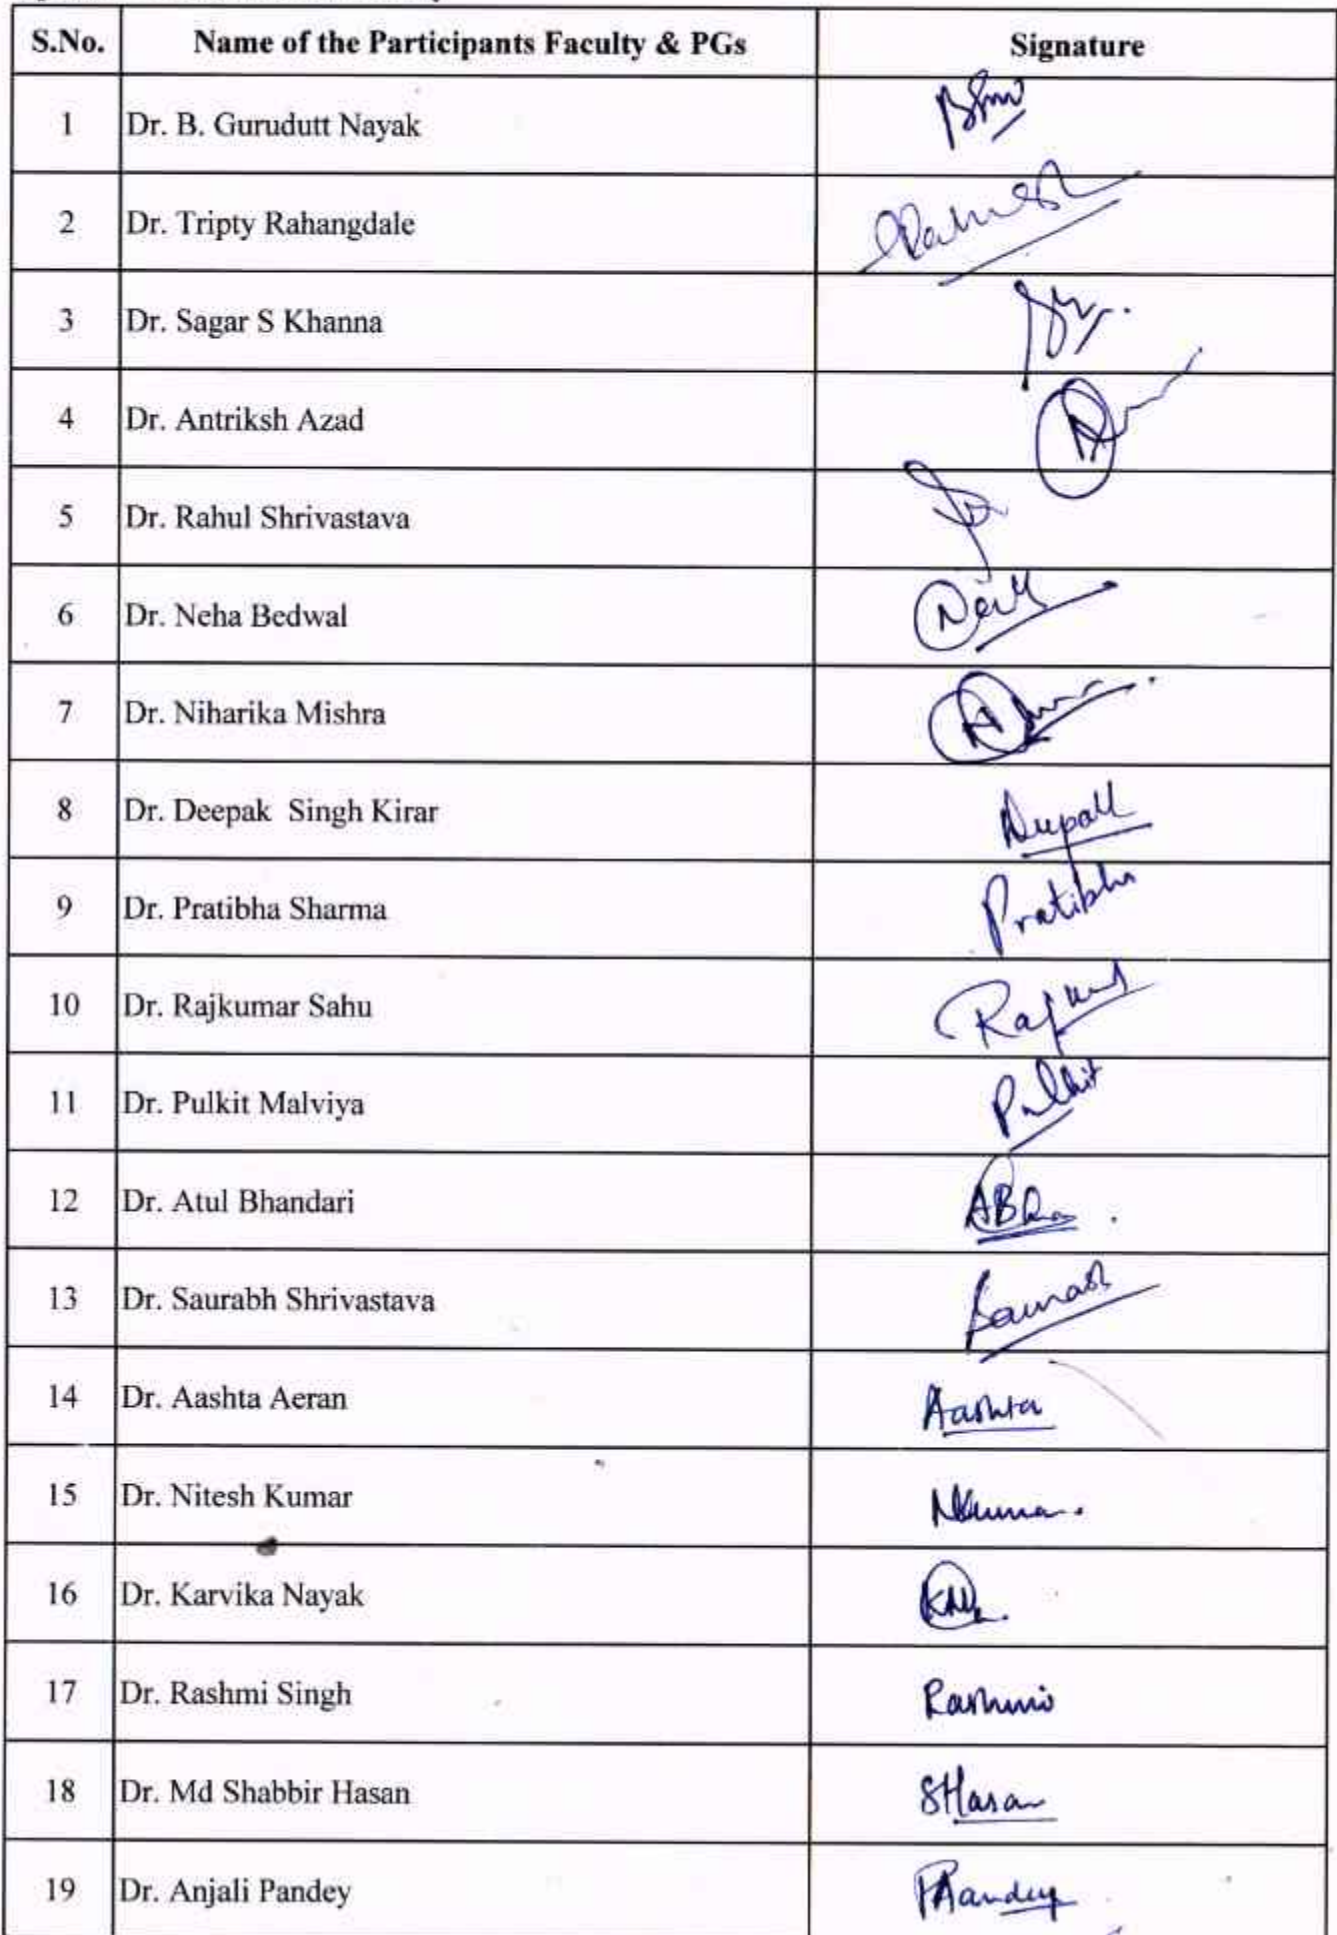 S.No. Name of the Participants Faculty & PGs Signature
1 Dr. B. Gurudutt Nayak
2 Dr. Tripty Rahangdale
3 Dr. Sagar S Khanna
4 Dr. Antriksh Azad
5 Dr. Rahul Shrivastava
6 Dr. Neha Bedwal
7 Dr. Niharika Mishra
8 Dr. Deepak Singh Kirar
9 Dr. Pratibha Sharma Pratibha
10 Dr. Rajkumar Sahu
11 Dr. Pulkit Malviya Pulkit
12 Dr. Atul Bhandari
13 Dr. Saurabh Shrivastava Saurabh
14 Dr. Aashta Aeran Aashta
15 Dr. Nitesh Kumar NKumar.
16 Dr. Karvika Nayak
17 Dr. Rashmi Singh Rashmi
18 Dr. Md Shabbir Hasan SHasan
19 Dr. Anjali Pandey PAandey